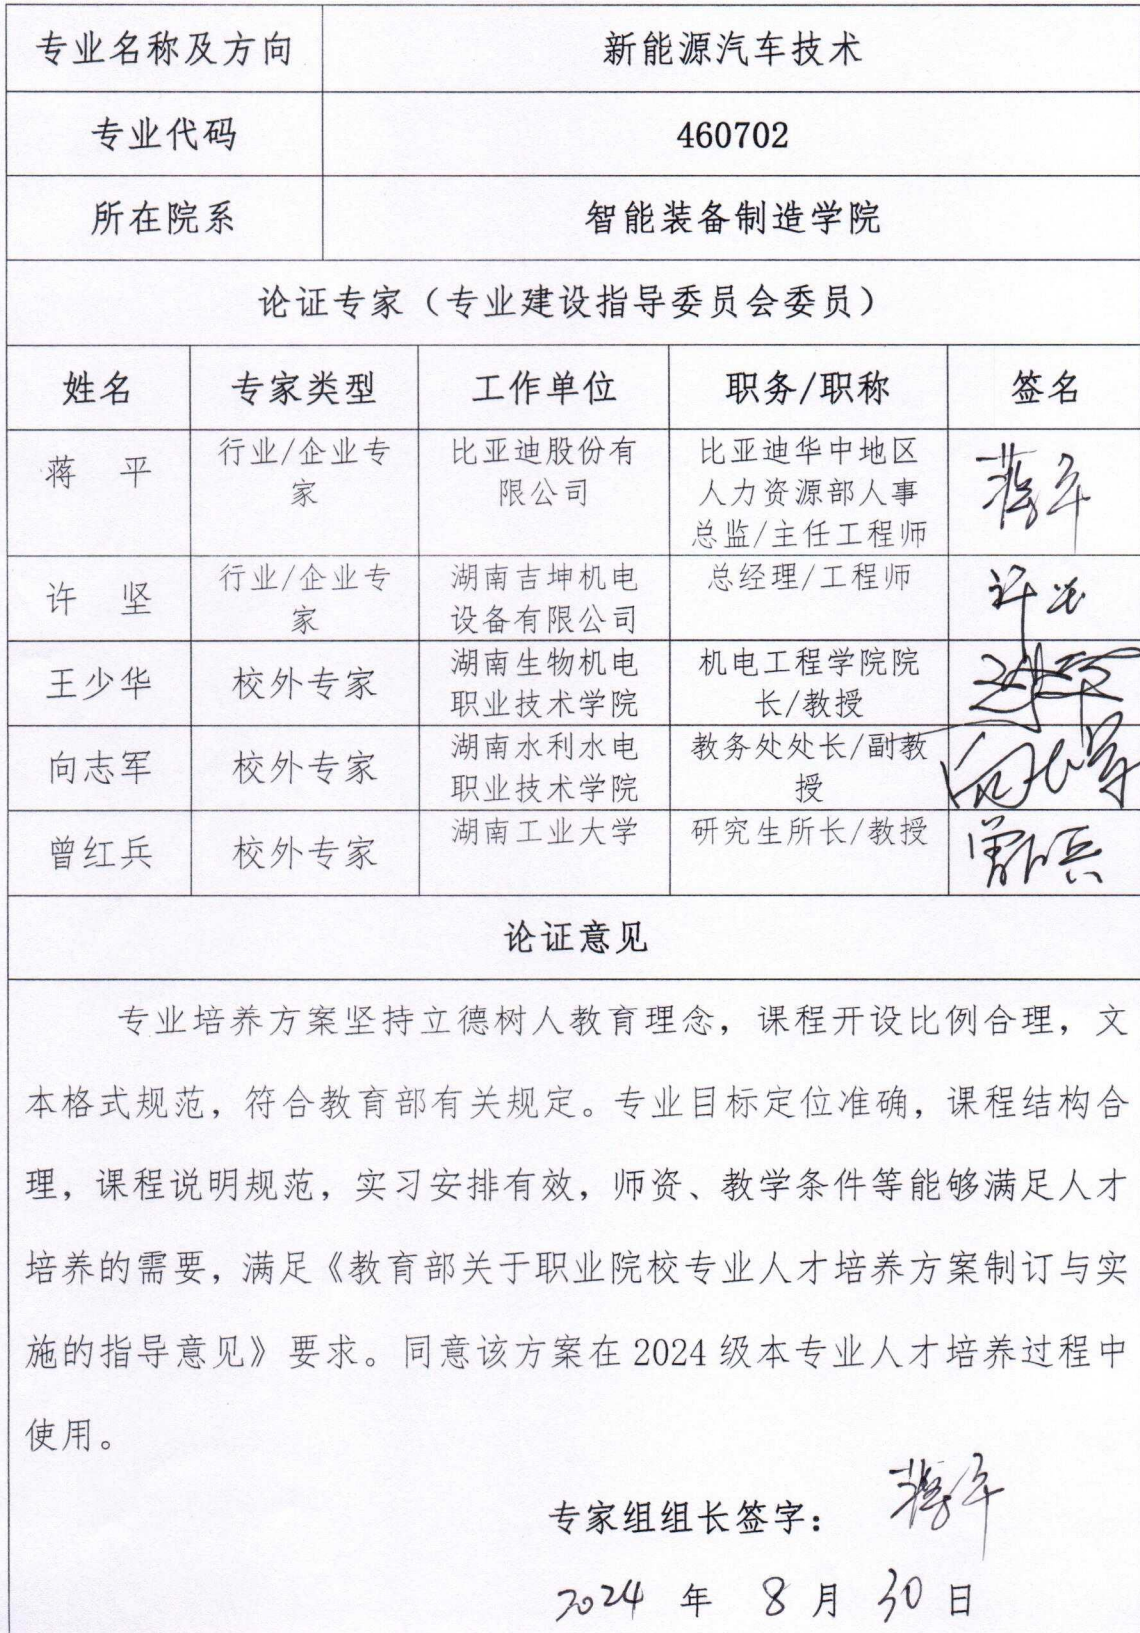 专业名称及方向 新能源汽车技术
专业代码 460702
所在院系 智能装备制造学院
论证专家（专业建设指导委员会委员）
姓名 专家类型 工作单位 职务/职称 签名
蒋 平 行业/企业专 比亚迪股份有 比亚迪华中地区 蒋平
家 限公司 人力资源部人事
总监/主任工程师
许 坚 行业/企业专 湖南吉坤机电 总经理/工程师 许坚
家 设备有限公司
王少华 校外专家 湖南生物机电 机电工程学院院
职业技术学院 长/教授
向志军 校外专家 湖南水利水电 教务处处长/副教 向志军
职业技术学院 授
曾红兵 校外专家 湖南工业大学 研究生所长/教授 曾红兵
论证意见
专业培养方案坚持立德树人教育理念，课程开设比例合理，文
本格式规范，符合教育部有关规定。专业目标定位准确，课程结构合
理，课程说明规范，实习安排有效，师资、教学条件等能够满足人才
培养的需要，满足《教育部关于职业院校专业人才培养方案制订与实
施的指导意见》要求。同意该方案在 2024 级本专业人才培养过程中
使用。
专家组组长签字： 蒋平
2024 年 8 月 30 日